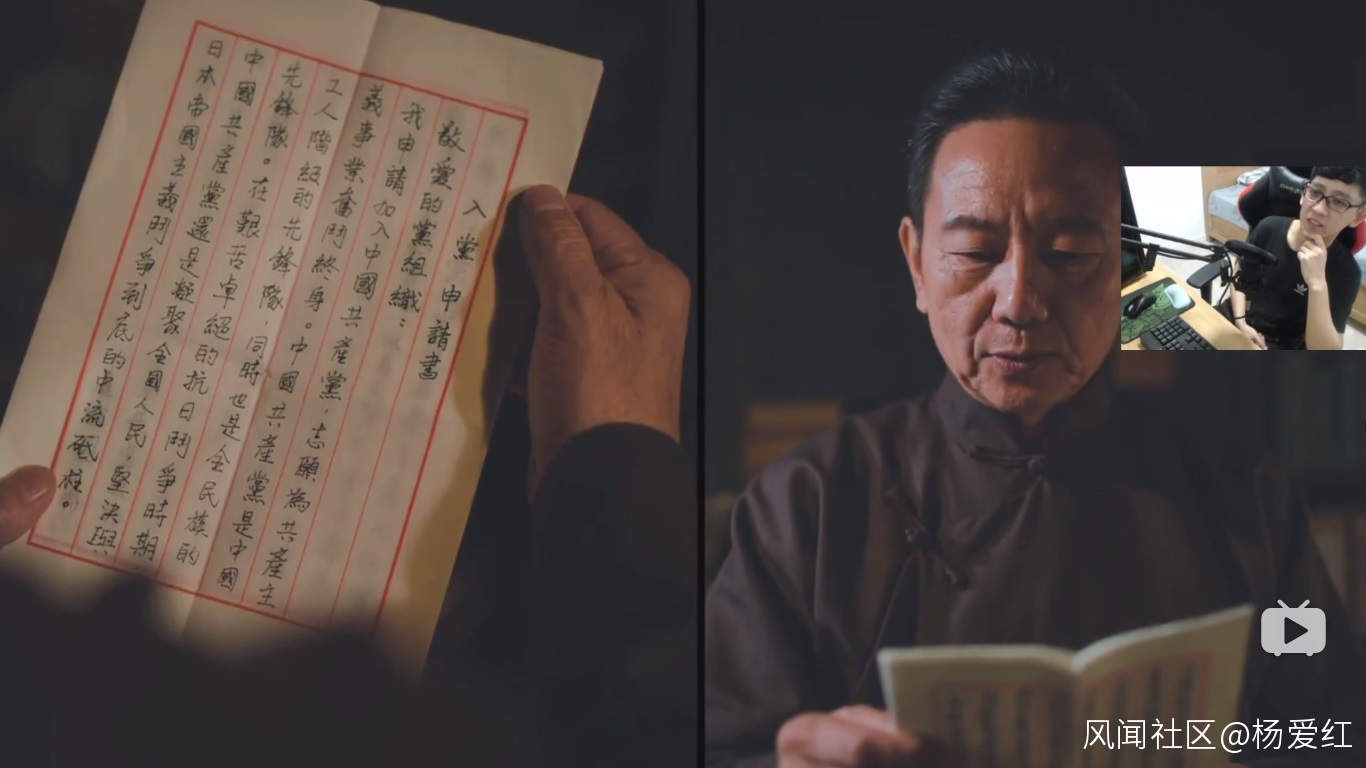 入黨申請書
敬愛的黨組織：
我申請加入中國共產黨，志願為共產主
義事業奮鬥終身。中國共產黨是中國
工人階級的先鋒隊，同時也是全民族的
先鋒隊。在艱苦卓絕的抗日鬥爭時期
中國共產黨還是凝聚全國人民，堅決與
日本帝國主義鬥爭到底的中流砥柱。
风闻社区@杨爱红